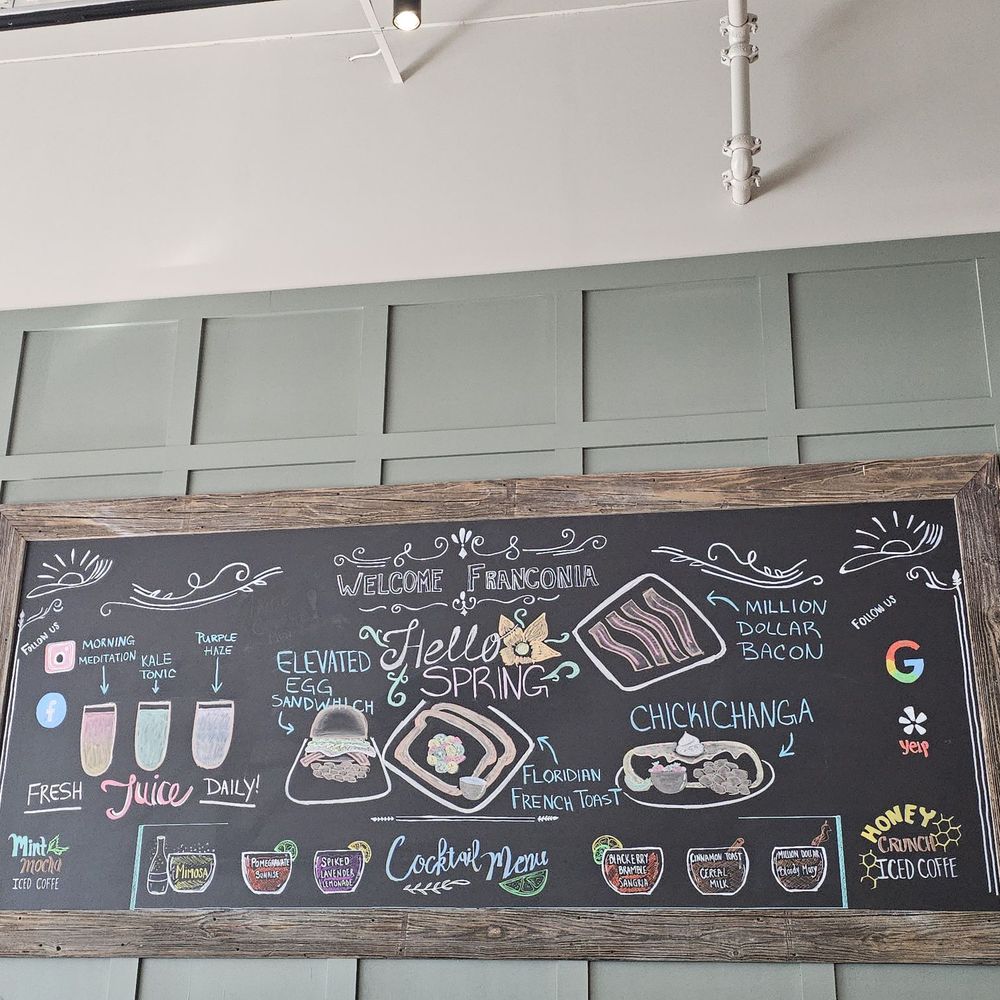 WELCOME FRANCONIA
Hello
SPRING
FOLLOW US
f
MORNING
MEDITATION
KALE
TONIC
PURPLE
HAZE
FRESH Juice DAILY!
ELEVATED
EGG
SANDWHICH
FLORIDIAN
FRENCH TOAST
MILLION
DOLLAR
BACON
CHICKICHANGA
FOLLOW US
G
yelp
Mint
mocha
ICED COFFE
MIMOSA
POMEGRANATE
SUNRISE
SPIKED
LAVENDER
LEMONADE
Cocktail Menu
BLACKBERRY
BRAMBLE
SANGRIA
CINNAMON TOAST
CEREAL
MILK
MILLION DOLLAR
Bloody Mary
HONEY
CRUNCH
ICED COFFE